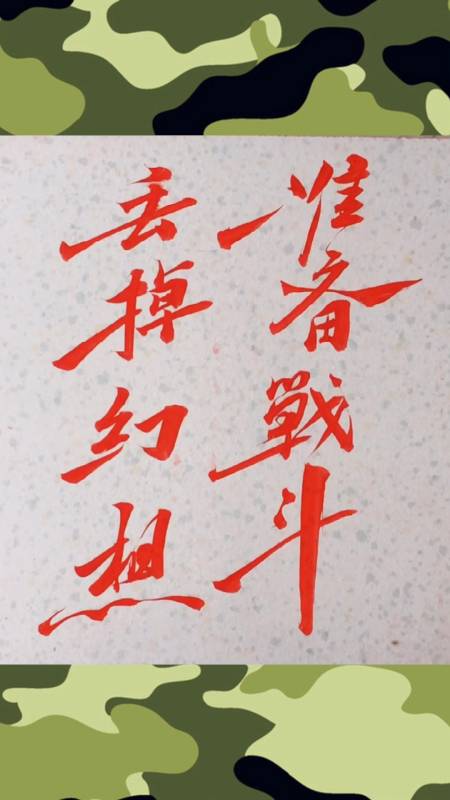 丢掉幻想
准备戰斗